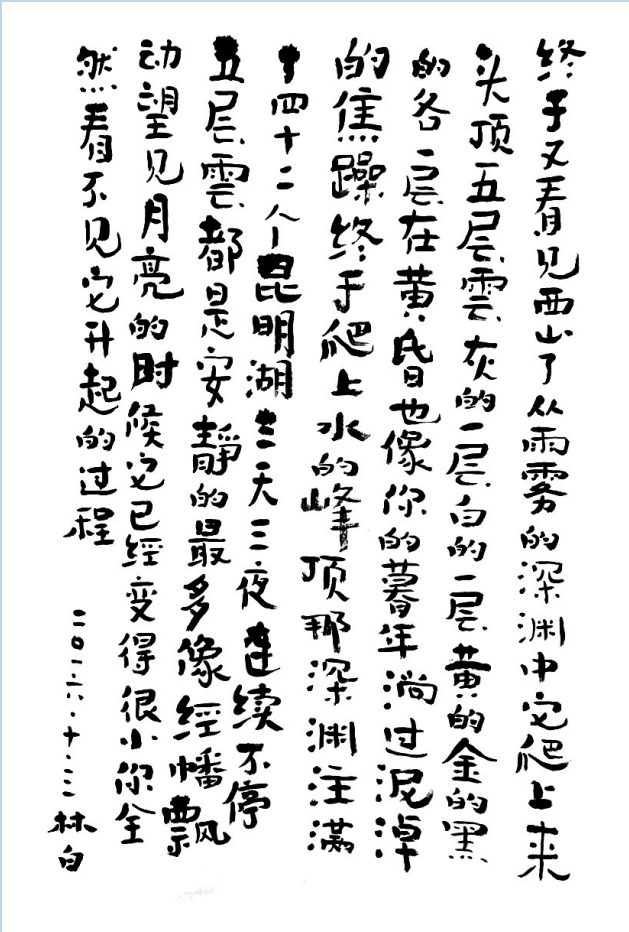 终于又看见西山了从雨雾的深渊中它爬上来
头顶五层雲灰的一层白的一层黄的金的黑
的各一层在黄昏也像你的暮年淌过泥淖
的焦躁终于爬上水的峰顶那深渊注满
了四十二个昆明湖三天三夜连续不停
五层雲都是安靜的最多像經幡飘
动望见月亮的时候它已經变得很小你全
然看不见它升起的过程
二〇一六·十·二二
林白